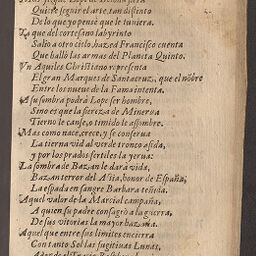 Quise seguir el arte, tan distinto
De lo que yo pensè que le tuuiera.
Ya que del cortesano labyrinto
Salio a otro cielo, haz ea Francisco cuenta
Que hallò las armas del Planeta Quinto.
Vn Aquiles Christiano representa
El gran Marques de Santacruz, que el nõbre
Entre los nueue de la Fama intenta.
A su sombra podrà Lope ser hombre,
Sino es que la fiereza de Minerua
Tierno le canse, o timido le assombre.
Mas como nace, crece, y se conserua
La tierna vid al verde tronco asida,
y por los prados fertiles la yerua:
La sombra de Bazan le darà vida,
Bazan terror del Asia, honor de España,
La espada en sangre Barbara teñida.
Aquel valor de la Marcial campaña,
A quien su padre consagrò a la guerra,
De sus vitorias la mayor hazaña.
Aquel que entre sus limites encierra
Con tanto Sol las fugitiuas Lunas,